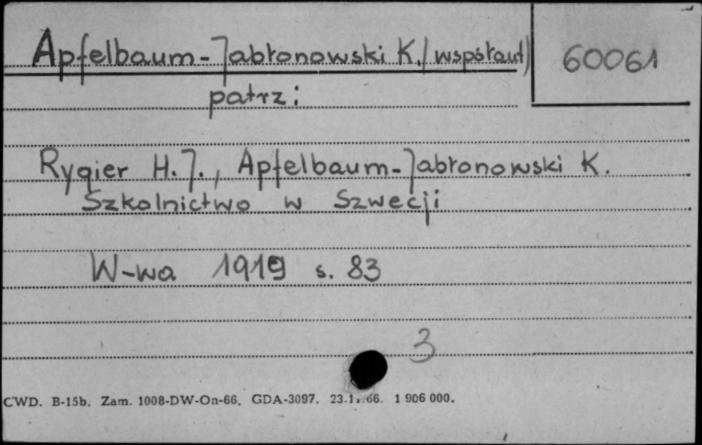 Apfelbaum-Jabłonowski K. (współaut)
60061
patrz:
Rygier H. J., Apfelbaum-Jabłonowski K.
Szkolnictwo w Szwecji
W-wa 1919 s. 83
3
CWD. B-15b. Zam. 1008-DW-On-66. GDA-3097. 1 906 000.